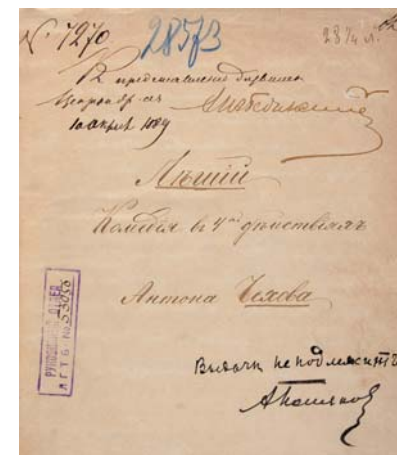 № 7270.
28573
28 3/4 л.
Къ представленію дозволено
1889
Лѣшій
Комедія въ 4хъ дѣйствіяхъ
Антона Чехова
РУКОПИСНЫЙ ОТДЕЛ
Л Г Т Б - №53056
Выдачи не подлежитъ